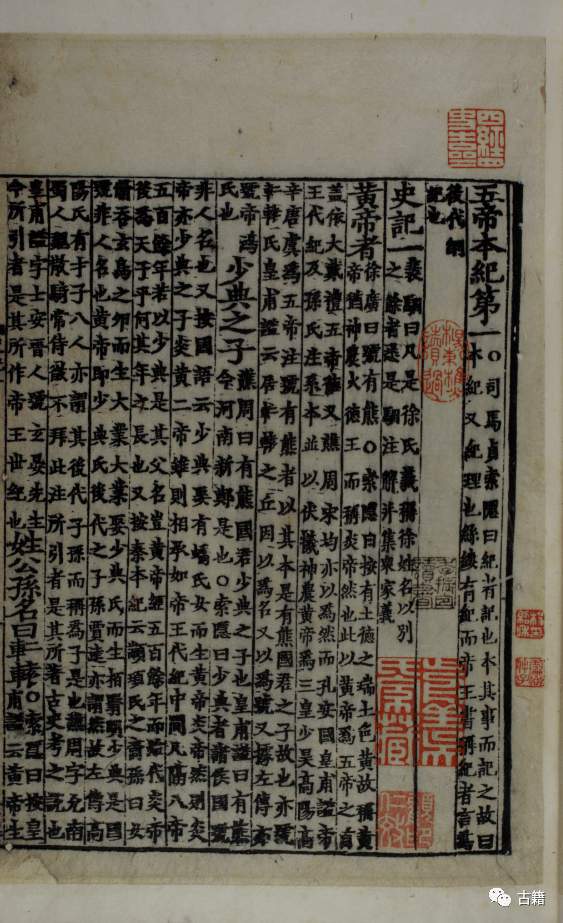 五帝本紀第一
○司馬貞索隱曰紀者記也本其事而記之故曰
本紀又紀理也絲縷有紀而帝王書稱紀者言爲
後代綱
紀也
史記一
裴駰曰凡是徐氏義稱徐姓名以別
之餘者悉是駰注解并集衆家義
黃帝者
徐廣曰號有熊○索隱曰按有土德之瑞土色黃故稱黃
帝猶神農火德王而稱炎帝然也此以黃帝爲五帝之首
蓋依大戴禮五帝德又譙周宋均亦以爲然而孔安國皇甫謐帝
王代紀及孫氏注系本並以伏犧神農黃帝爲三皇少昊高陽高
辛唐虞爲五帝注號有熊者以其本是有熊國君之子故也亦號
軒轅氏皇甫謐云居軒轅之丘因以爲名又以爲號又據左傳亦
號帝鴻
氏也
少典之子
譙周曰有熊國君少典之子也皇甫謐曰有熊
今河南新鄭是也○索隱曰少典者諸侯國號
非人名也又按國語云少典娶有蟜氏女而生黃帝炎帝然則炎
帝亦少典之子炎黃二帝雖則相承如帝王代紀中間凡隔八帝
五百餘年若以少典是其父名豈黃帝經五百餘年而始代炎帝
後爲天子乎何其年之長也又按秦本紀云顓頊氏之裔孫曰女
脩吞玄鳥之卵而生大業大業娶少典氏而生柏翳明少典是國
號非人名也黃帝即少典氏後代之子孫賈逵亦謂然故左傳高
陽氏有才子八人亦謂其後代子孫而稱爲子是也譙周字允南
蜀人魏散騎常侍徵不拜此注所引者是其所著古史考之說也
皇甫謐字士安晉人號玄晏先生
今所引者是其所作帝王世紀也
姓公孫名曰軒轅
○索隱曰按皇
甫謐云黃帝生
古籍